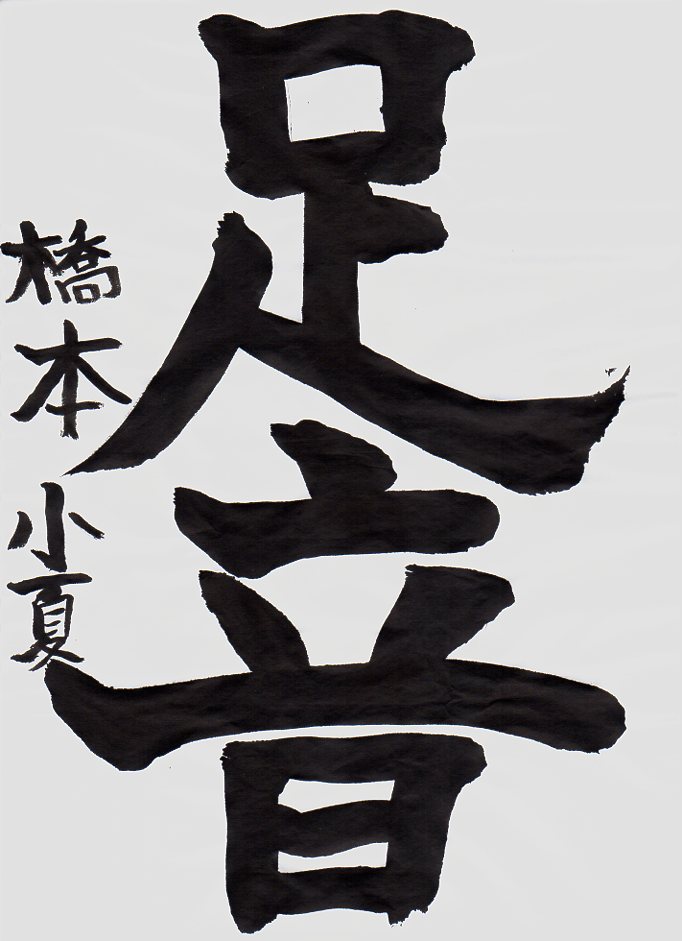 足音
橋本小夏